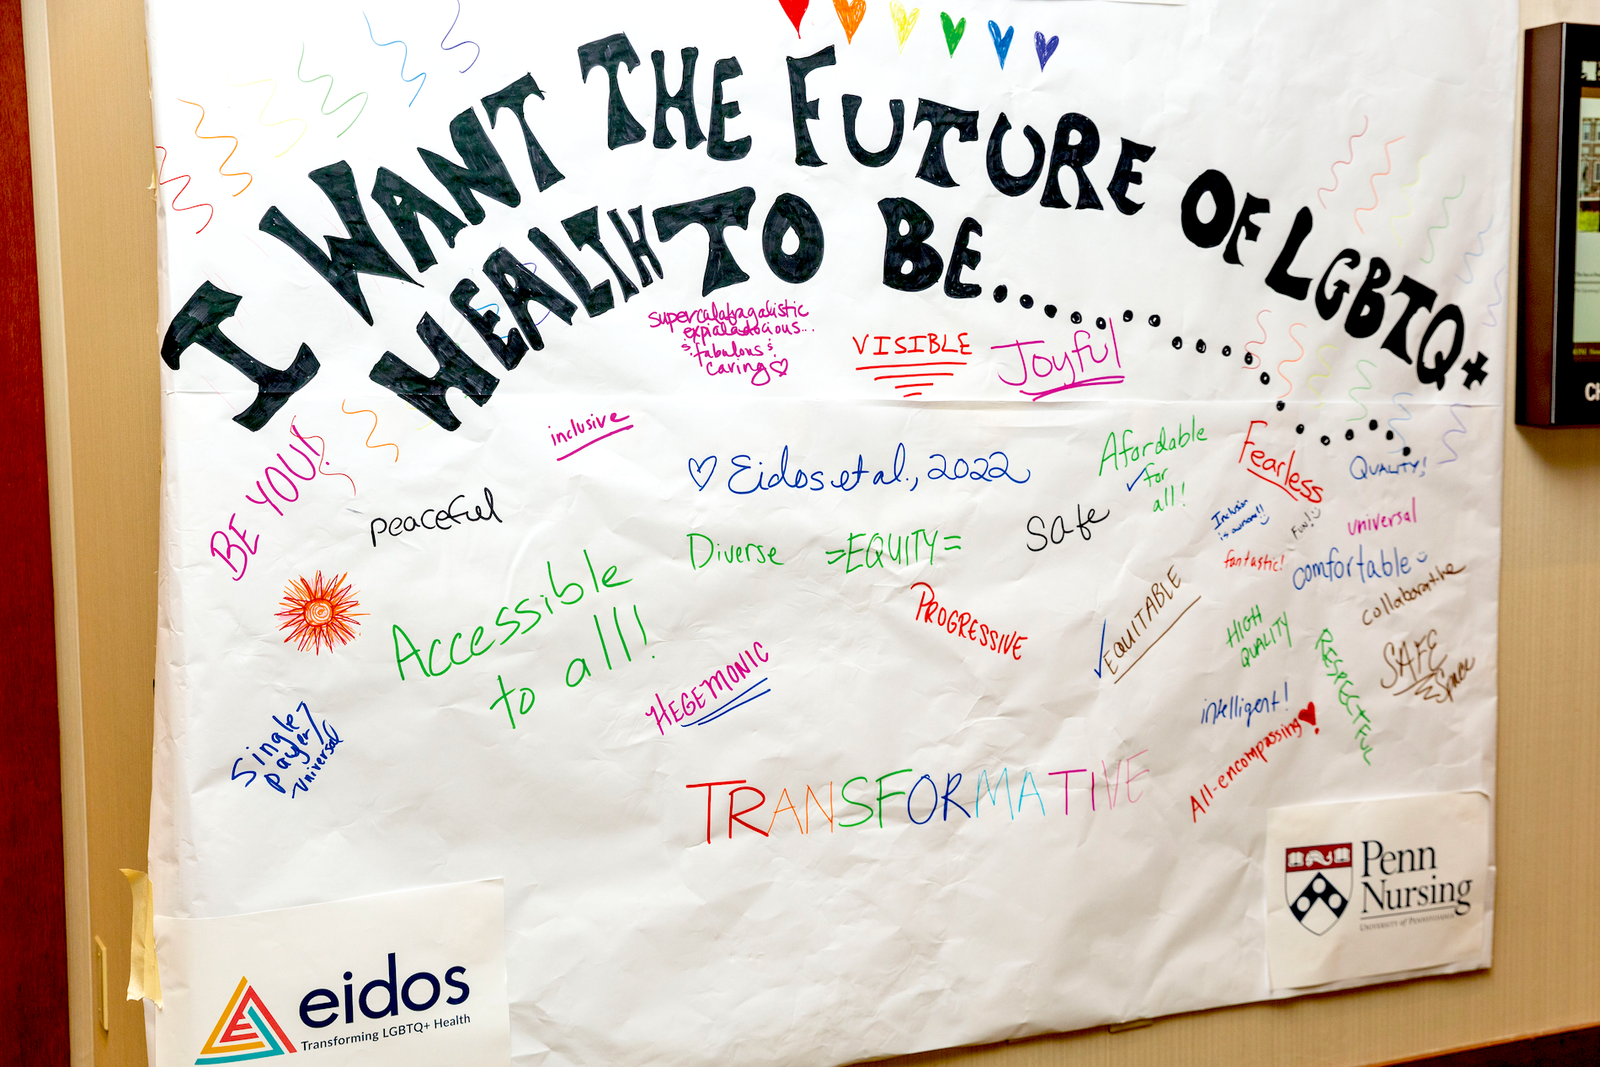 I WANT THE FUTURE OF LGBTQ+
HEALTH TO BE...
supercalafragalistic
expialadocious...
fabulous
caring
VISIBLE
Joyful
inclusive
BE YOU!
peaceful
Eidos et al., 2022
Afordable
for
all!
Fearless
QUALITY!
Inclusion
is awesome!!
Fun!
universal
Safe
Diverse
=EQUITY=
fantastic!
comfortable
collaborative
Accessible
to all!
PROGRESSIVE
EQUITABLE
HIGH
QUALITY
RESPECTFUL
SAFE
Space
HEGEMONIC
intelligent!
All-encompassing!
Single-
payer/
Universal
TRANSFORMATIVE
Penn
Nursing
UNIVERSITY of PENNSYLVANIA
eidos
Transforming LGBTQ+ Health